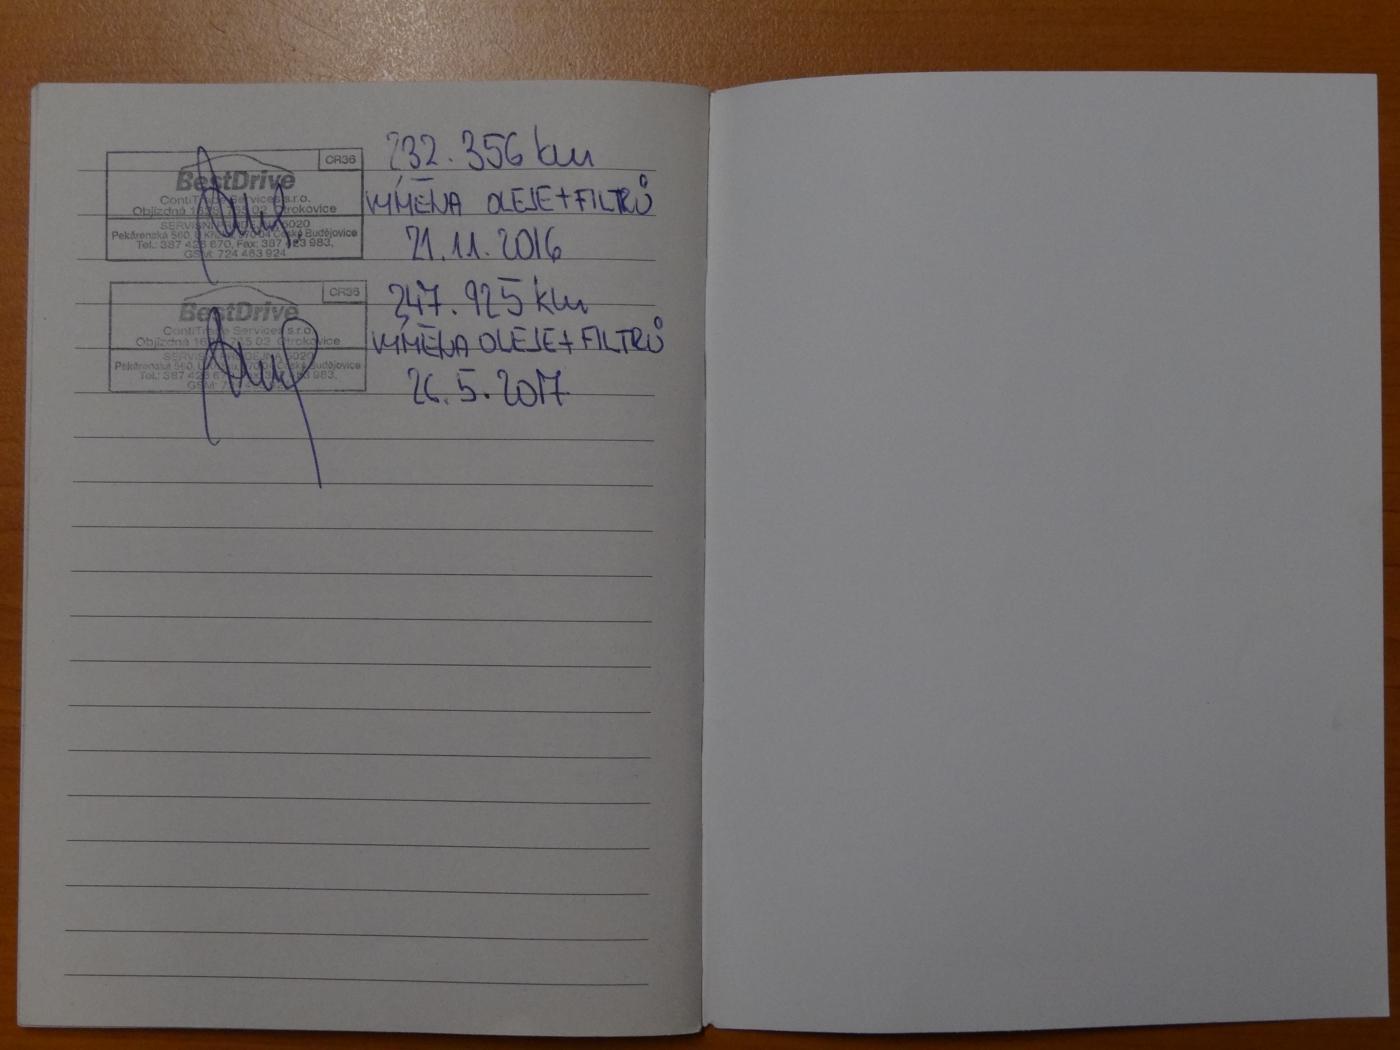 CR36
BestDrive
ContiTrade Services s.r.o.
Objízdná 1628, 765 02 Otrokovice
Pekárenská 560, 370 04 České Budějovice
Tel.: 387 428 670, Fax: 387 423 983,
GSM: 724 463 924
232.356 km
VÝMĚNA OLEJE+FILTRŮ
21.11.2016
CR36
BestDrive
ContiTrade Services s.r.o.
765 02 Otrokovice
Pekárenská 560, 370 04 České Budějovice
Tel.: 387 428 983,
247.925 km
VÝMĚNA OLEJE+FILTRŮ
26.5.2017